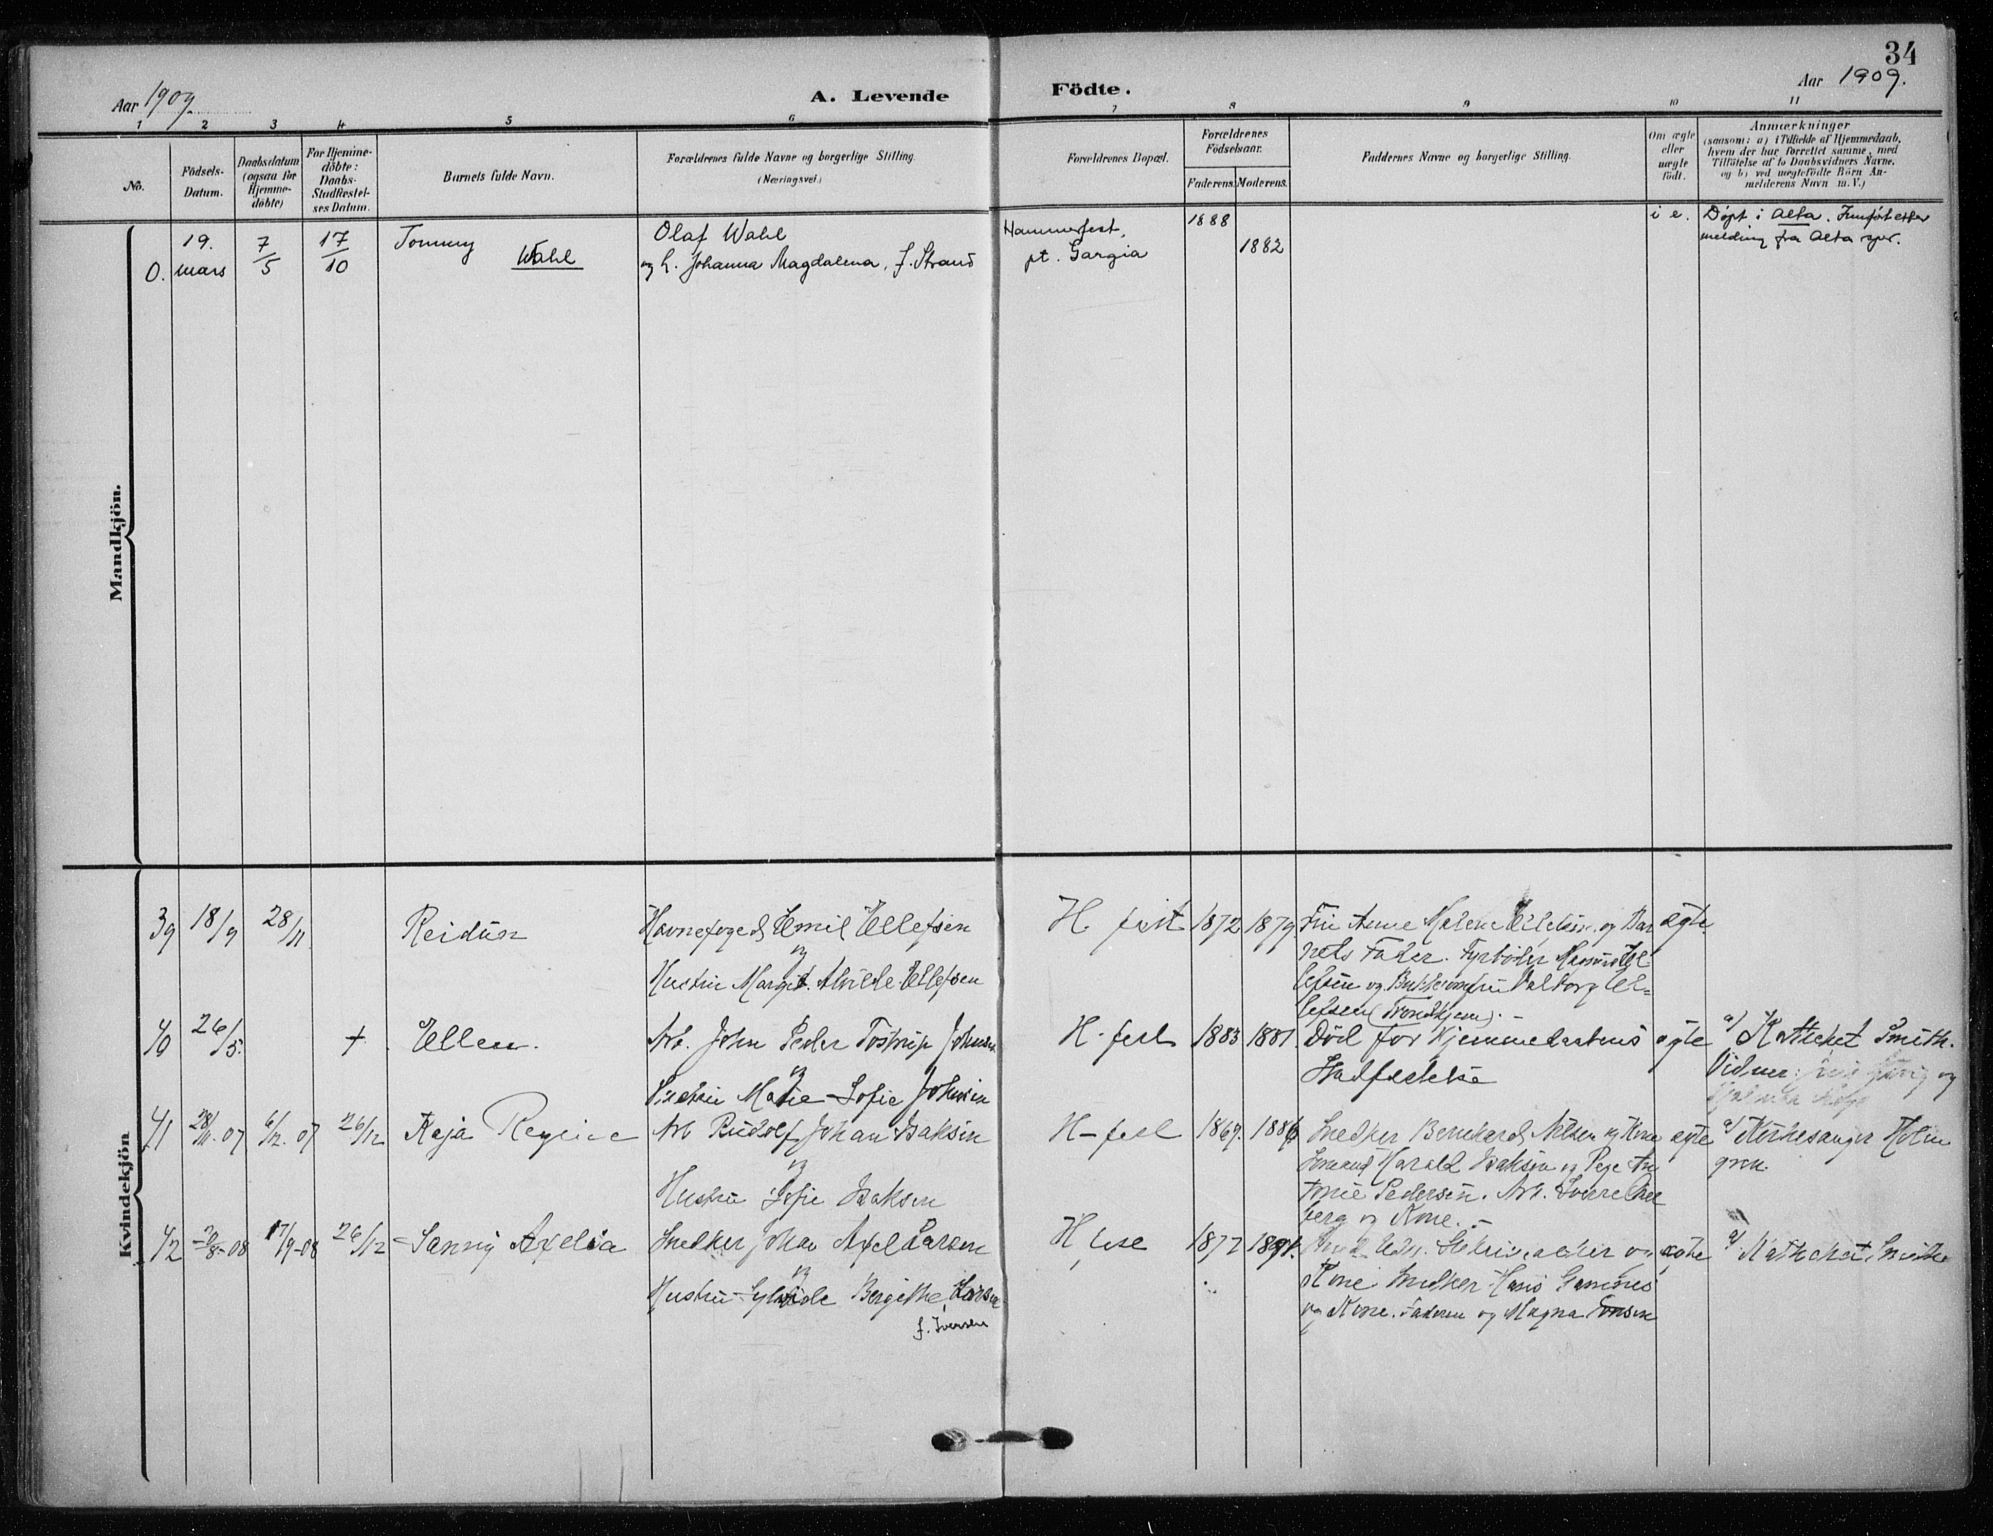 34
Aar 1909.
A. Levende Födte.
Aar 1909.
1 2 3 4 5 6 7 8 9 10 11
No.
Födsels-
Datum.
Daabsdatum
(ogsaa for
Hjemme-
döbte)
For Hjemme-
döbte:
Daabs-
Stadfæstel-
ses Datum.
Barnets fulde Navn.
Forældrenes fulde Navne og borgerlige Stilling.
(Næringsvei.)
Forældrenes Bopæl.
Forældrenes
Födselsaar.
Faderens. Moderens.
Faddernes Navne og borgerlige Stilling.
Om ægte
eller
uægte
födt.
Anmærkninger
(saasom: a) i Tilfælde af Hjemmedaab,
hvem der har forrettet samme, med
Tilföielse af to Daabsvidners Navne,
og b) ved uægtefödte Börn An-
melderens Navn m. V.)
Mandkjön.
0. 19. mars 7/5 17/10 Tommy Wahl
Olaf Wahl
og h. Johanna Magdalena, f. Strand
Hammerfest,
pt. Gargia
1888 1882
i e.
Døpt i Alta. Innført etter
melding fra Alta spr.
Kvindekjön
39 18/9 28/11 Reidun
Havnefoged Emil Ellefsen
og
Hustru Margit Alvilde Ellefsen
H fest 1872 1879
Fru Anne Malene Ellefsen og Bar
nets Fader. Fyrböder El
lefsen og Valborg El=
lefsen (Trondhjem). -
ægte
40 26/5. + Ellen.
Arb. John Peder Tostrup Johnsen
og
Hustru Marie Sofie Johnsen
H-fest 1883 1881.
Död før Hjemmedaabens
Stadfæstelse
ægte
a) Katteket Smith.
Vidner: og
41 28/11. 07 6/12. 07 26/12 Kaja Regine
Arb Rudolf Johan Isaksen
og
Hustru Sofie Isaksen
H-fest 1869. 1886
Snedker Bernhard Nilsen og Kone
Harald Isaksen og Pige An
tonie Pedersen. Arb. Sverre
berg og Kone. -
ægte
a) Kirkesanger Holm
gren
42 20/8-08 17/9-08 26/12 Sanny Axelia
Snedker Johan Axel Larsen
og
Hustru Bergithe Larsen
f. Iversen
H, fest 1877 1881.
og
Kone Snedker Hans
og Kone. Faderen og Magna
ægte
a) Kathekat Smith